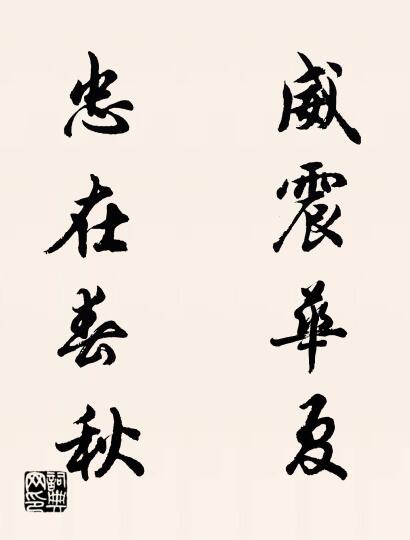 威震華夏
忠在春秋
詞典網